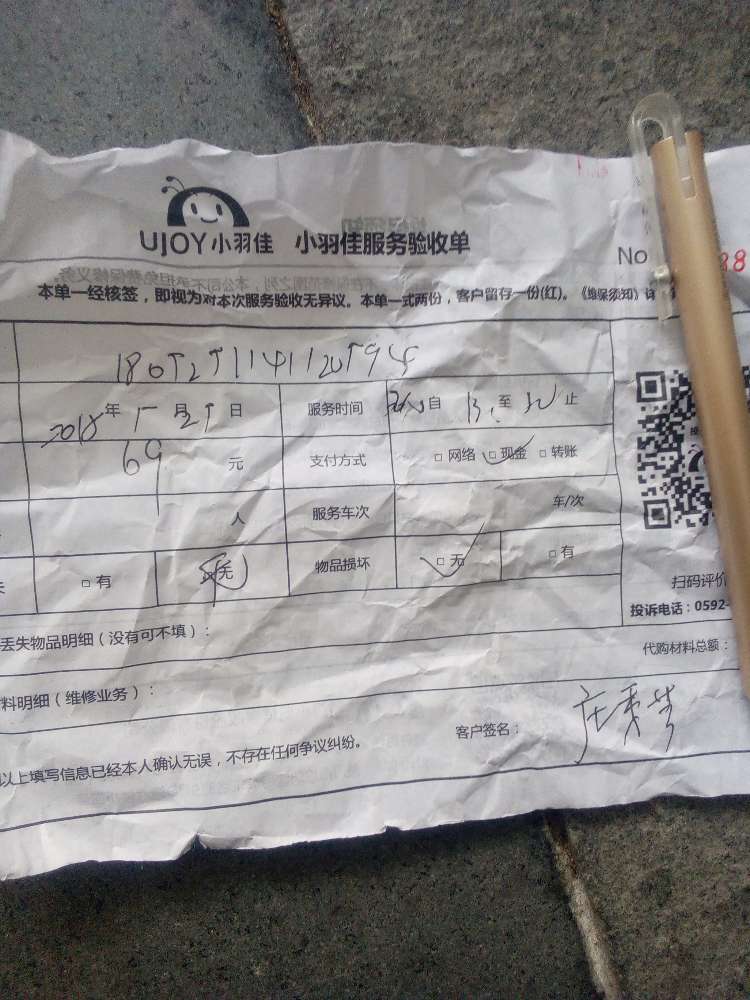 UJOY小羽佳 小羽佳服务验收单
No 88
本单一经核签，即视为对本次服务验收无异议。本单一式两份，客户留存一份(红)。《维保须知》详
180525114112594
2018年5月25日 服务时间 自 13: 至 30 止
69 元 支付方式 □网络 □现金 □转账
人 服务车次 车/次
□有 □无 物品损坏 □无 □有
扫码评价
丢失物品明细（没有可不填）： 投诉电话：0592-
代购材料总额：
料明细（维修业务）：
客户签名： 庄秀
以上填写信息已经本人确认无误，不存在任何争议纠纷。